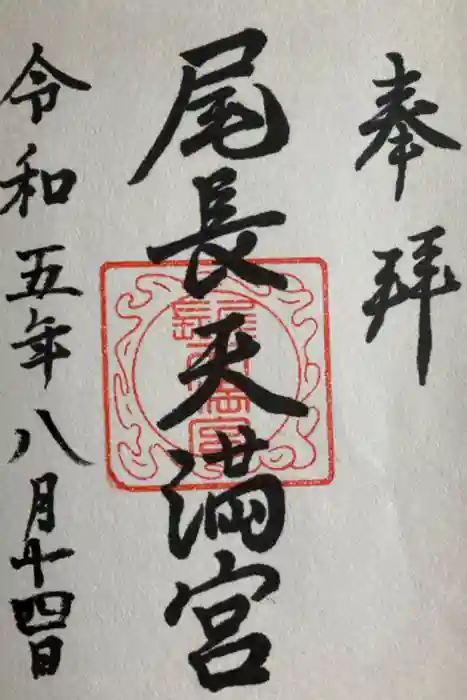 奉拝
尾長天満宮
令和五年八月十四日